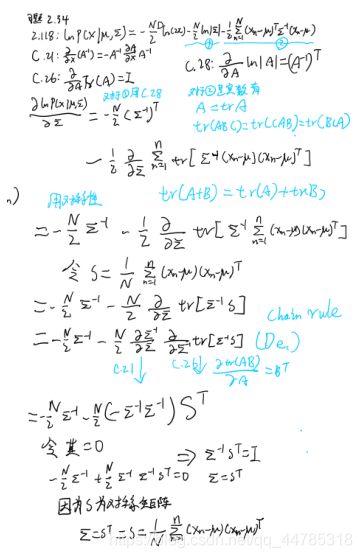 习题 2.34
2.118: ln P(X|μ,Σ) = -ND/2 ln(2π) - N/2 ln|Σ| - 1/2 Σ_{n=1}^{N} (xn-μ)^T Σ^-1 (xn-μ)
① ②
C.21: ∂/∂x (A^-1) = -A^-1 ∂A/∂x A^-1
C.28: ∂/∂A ln|A| = (A^-1)^T
C.26: ∂/∂A Tr(A) = I
对于①用C.28
对于②是实数有
A = trA
tr(ABC) = tr(CAB) = tr(BCA)
∂lnP(X|μ,Σ)/∂Σ = -N/2 (Σ^-1)^T
- 1/2 ∂/∂Σ Σ_{n=1}^{n} tr[Σ^-1 (xn-μ)(xn-μ)^T]
用对称性
tr(A+B) = tr(A)+trB
= -N/2 Σ^-1 - 1/2 ∂/∂Σ tr[Σ^-1 Σ_{n=1}^{n} (xn-μ)(xn-μ)^T]
令 S = 1/N Σ_{n=1}^{n} (xn-μ)(xn-μ)^T
= -N/2 Σ^-1 - N/2 ∂/∂Σ tr[Σ^-1 S]
chain rule
= -N/2 Σ^-1 - N/2 ∂Σ^-1/∂Σ ∂/∂Σ^-1 tr[Σ^-1 S]
C.21 C.26 ∂tr(AB)/∂A = B^T
= -N/2 Σ^-1 - N/2 (-Σ^-1 Σ^-1) S^T
令其=0 ⇒ Σ^-1 S^T = I
-N/2 Σ^-1 + N/2 Σ^-1 Σ^-1 S^T = 0 Σ = S^T
因为S为对称矩阵
Σ = S^T = S = 1/N Σ_{n=1}^{n} (xn-μ)(xn-μ)^T
https://blog.csdn.net/qq_44785318